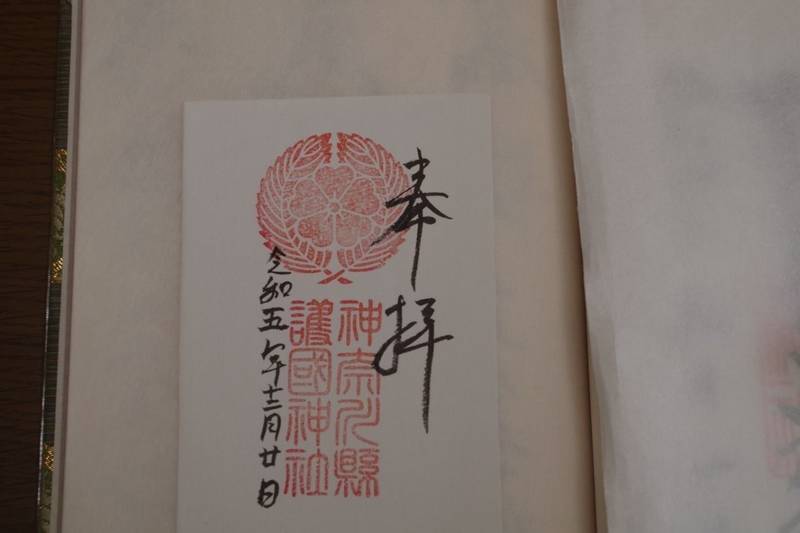 奉拝
神奈川縣
護國神社
令和五年十二月廿日